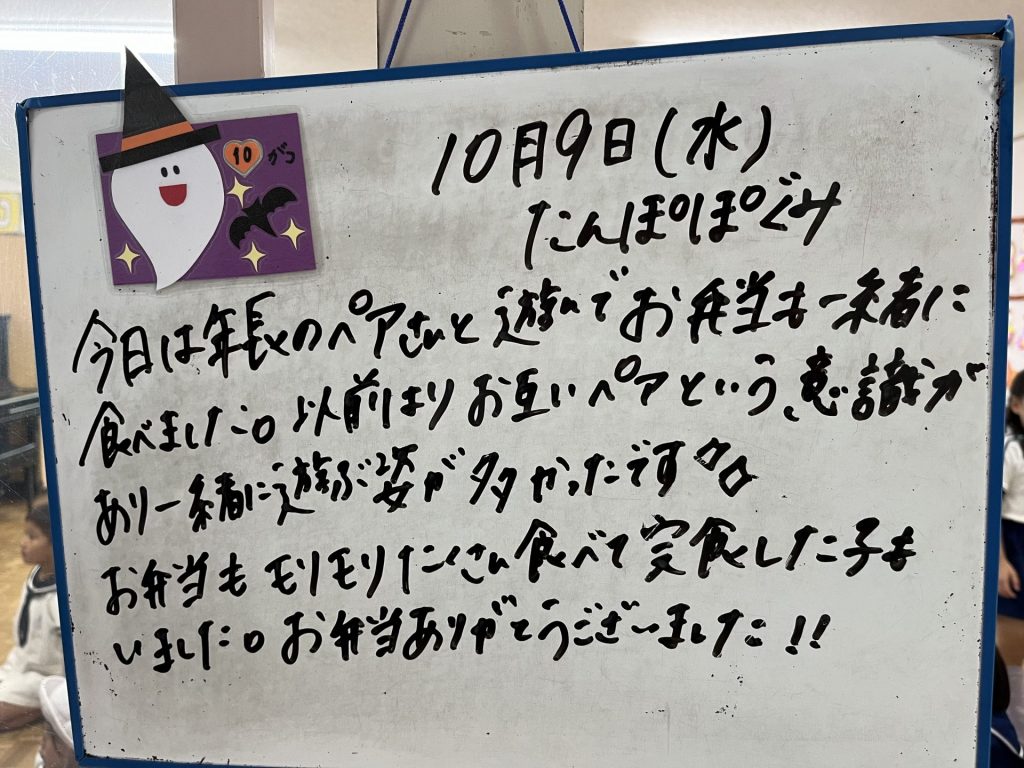 10がつ
10月9日(水)
たんぽぽぐみ
今日は年長のペアさんと遊んでお弁当も一緒に
食べました。以前よりお互いペアという意識が
あり一緒に遊ぶ姿が多かったです♡。
お弁当もモリモリたくさん食べて完食した子も
いました。お弁当ありがとうございました!!